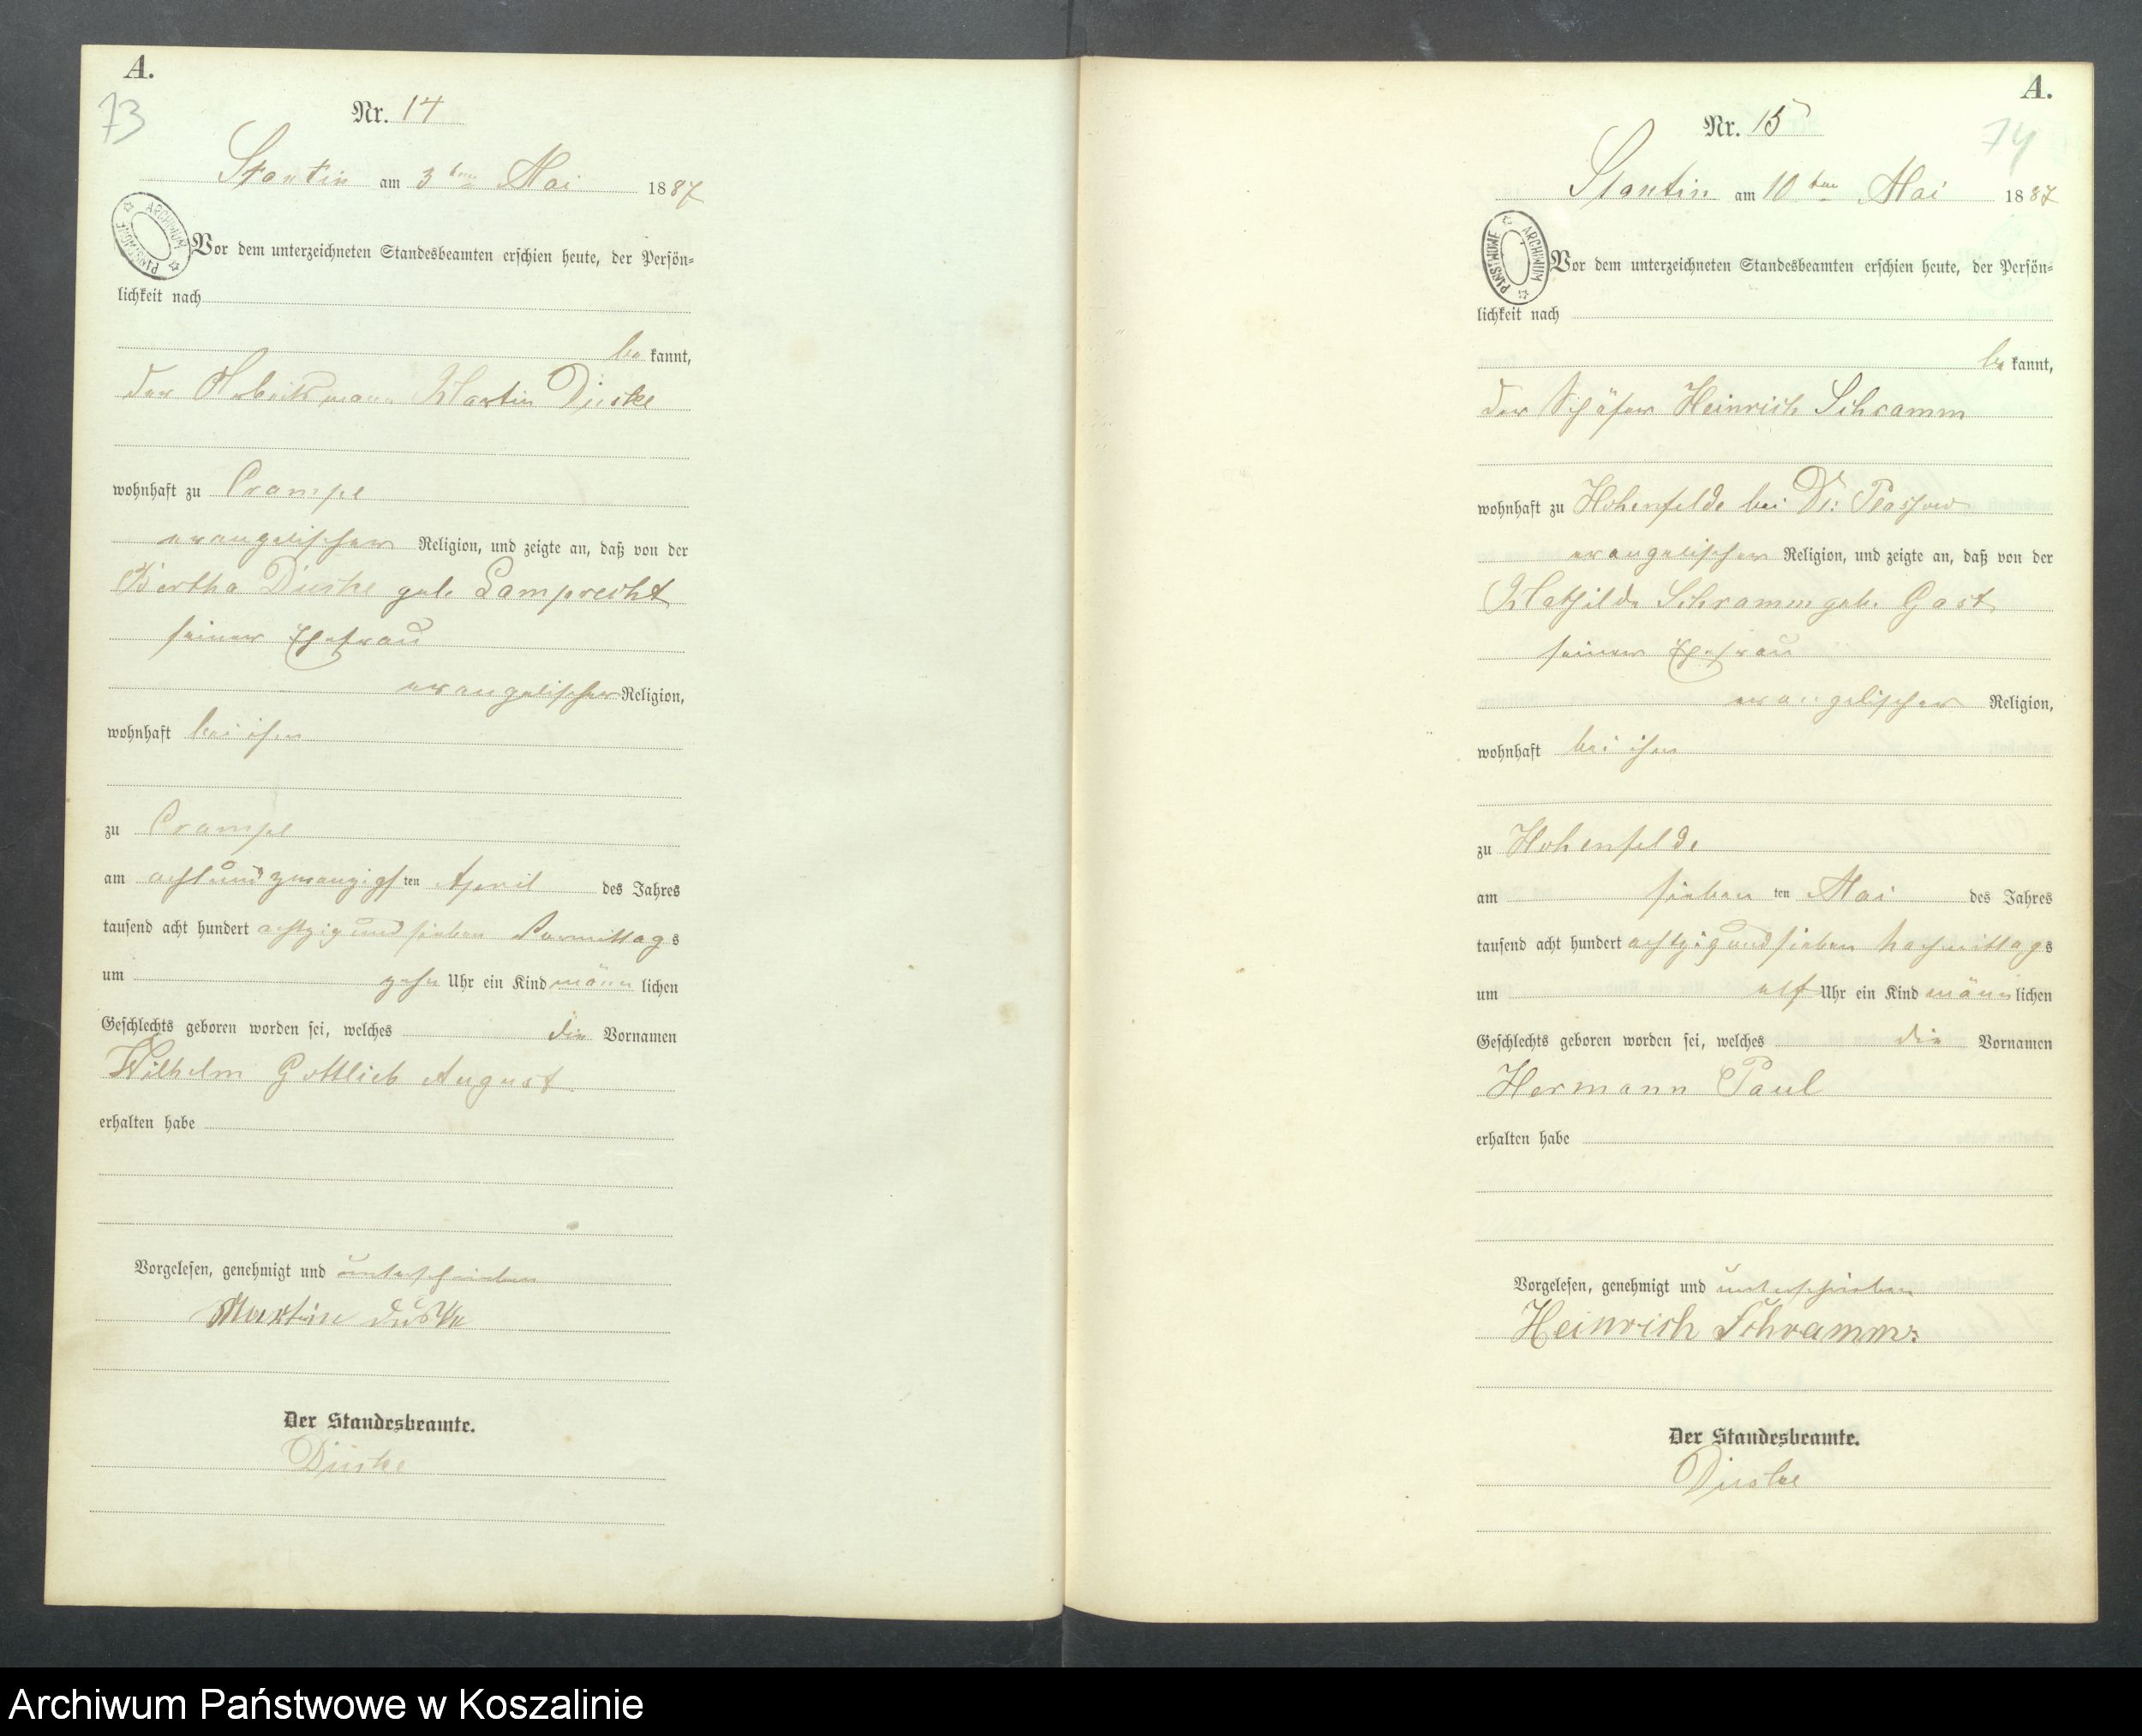 A.
73
Nr. 14
Stantin am 3ten Mai 1887
ARCHIWUM PAŃSTWOWE
Vor dem unterzeichneten Standesbeamten erschien heute, der Persön=
lichkeit nach
be kannt,
der Arbeitsmann Martin Düske
wohnhaft zu Crampe
evangelischer Religion, und zeigte an, daß von der
Bertha Düske geb. Lamprecht
seiner Ehefrau
evangelischer Religion,
wohnhaft bei ihm
zu Crampe
am achtundzwanzigsten April des Jahres
tausend acht hundert achtzig und sieben Vormittags
um zehn Uhr ein Kind männlichen
Geschlechts geboren worden sei, welches die Vornamen
Wilhelm Gottlieb August
erhalten habe
Vorgelesen, genehmigt und unterschrieben
Martin Düske
Der Standesbeamte.
Düske
A.
74
Nr. 15
Stantin am 10ten Mai 1887
ARCHIWUM PAŃSTWOWE
Vor dem unterzeichneten Standesbeamten erschien heute, der Persön=
lichkeit nach
be kannt,
der Schäfer Heinrich Schramm
wohnhaft zu Hohenfelde bei Dt: Plassow
evangelischer Religion, und zeigte an, daß von der
Mathilde Schramm geb. Gast
seiner Ehefrau
evangelischer Religion,
wohnhaft bei ihm
zu Hohenfelde
am sieben ten Mai des Jahres
tausend acht hundert achtzig und sieben Nachmittags
um elf Uhr ein Kind männlichen
Geschlechts geboren worden sei, welches die Vornamen
Hermann Paul
erhalten habe
Vorgelesen, genehmigt und unterschrieben
Heinrich Schramm.
Der Standesbeamte.
Düske
Archiwum Państwowe w Koszalinie